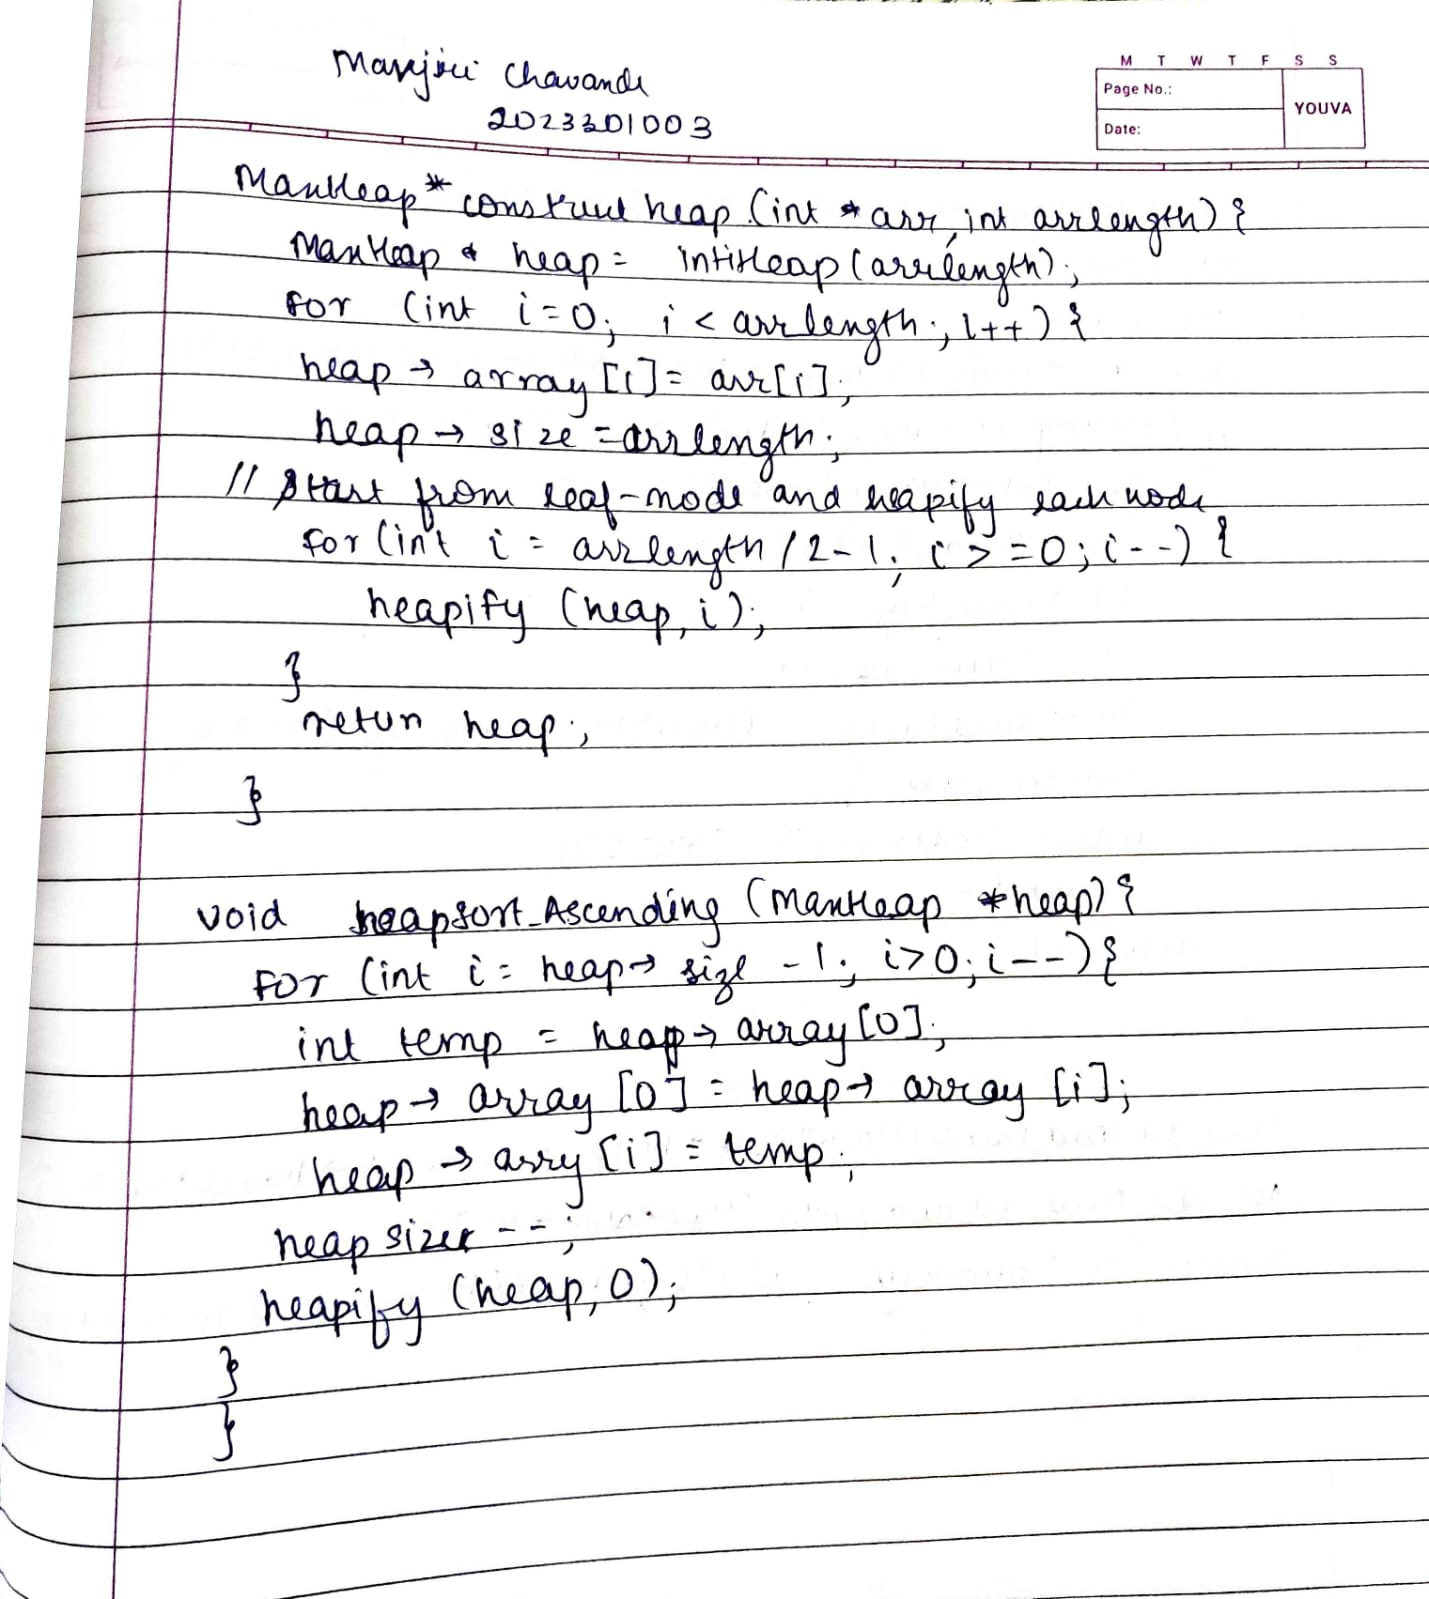 Manjiri Chavande
2023301003
M T W T F S S
Page No.:
YOUVA
Date:
MaxHeap* construct heap (int * arr, int arrlength) {
MaxHeap * heap = intiHeap (arrlength);
for (int i=0; i < arrlength; i++) {
heap → array [i] = arr[i];
heap → size = arrlength;
// Start from leaf-node and heapify each node
for (int i = arrlength /2-1; i >=0; i--) {
heapify (heap, i);
}
retun heap;
}
void heapsort_Ascending (MaxHeap *heap) {
for (int i = heap → size -1; i>0; i--) {
int temp = heap → array [0];
heap → array [0] = heap → array [i];
heap → arry [i] = temp;
heap size --;
heapify (heap, 0);
}
}